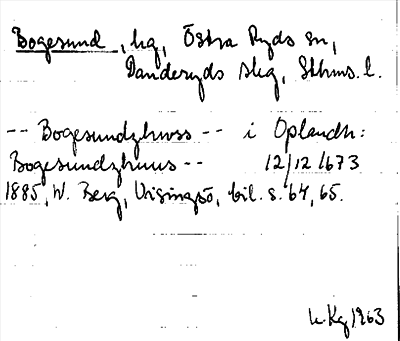 Bogesund, hg, Östra Ryds sn,
Danderyds skg, Sthms. l.
-- Bogesundzhwss -- i Oplandh:
Bogesundzhuus -- 12/12 1673
1885, W. Berg, Visingsö, bil. s. 64, 65.
1963